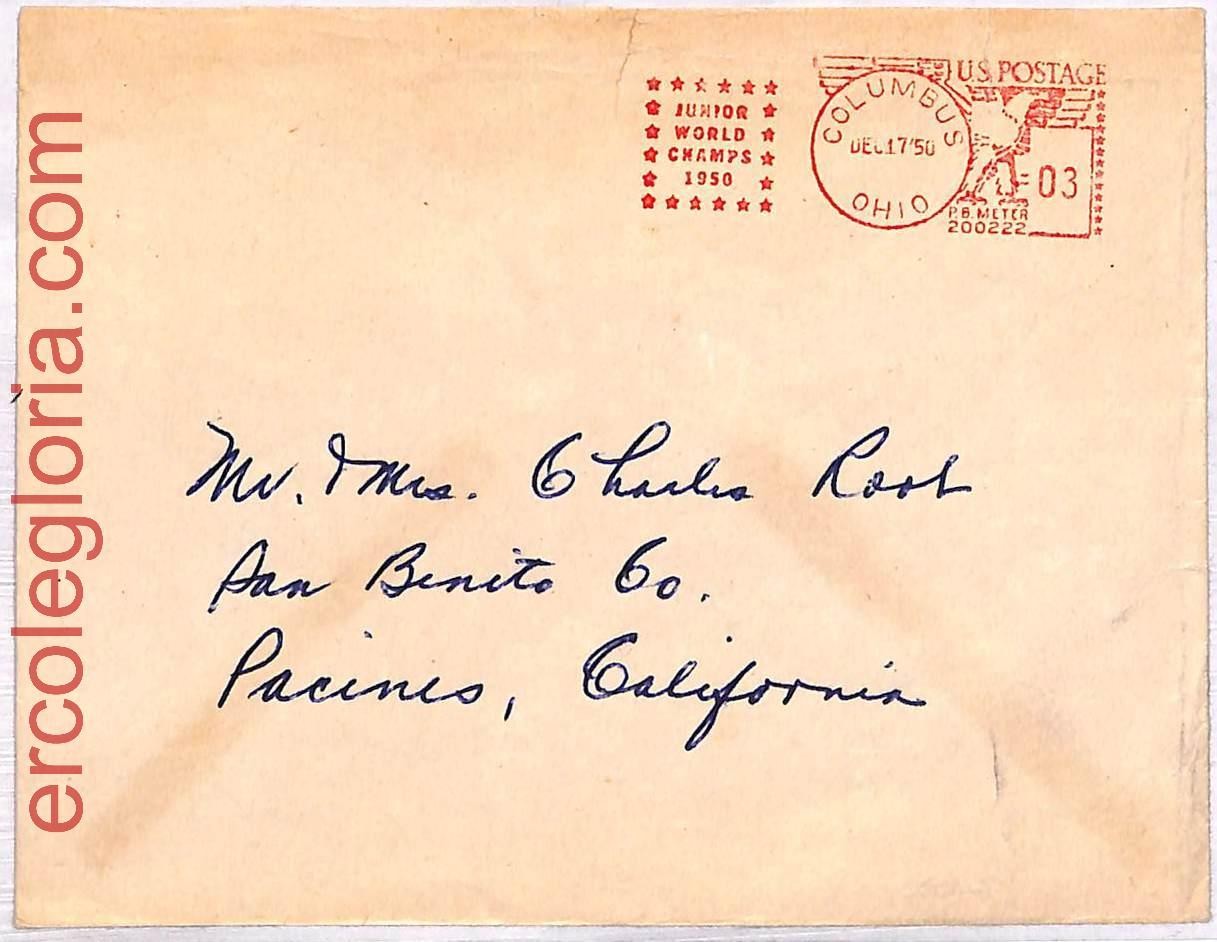 U.S. POSTAGE
JUNIOR
WORLD
CHAMPS
1950
COLUMBUS
DEC 17 '50
OHIO
03
P.B. METER
200222
Mr. & Mrs. Charles Root
San Benito Co.
Pacines, California
ercolegloria.com